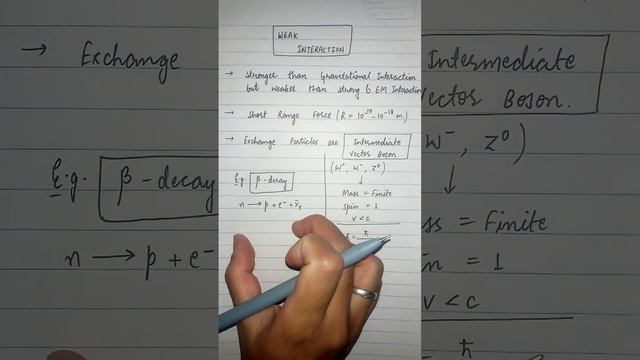 WEAK
INTERACTION
→ Stronger than Gravitational Interaction
but weaker than strong & EM Interaction
→ Short Range Force (R = 10⁻¹⁹ - 10⁻¹⁸ m)
→ Exchange Particles are Intermediate
Vector Boson.
E.g. β-decay
n → p + e⁻ + ν̄e
(W⁺, W⁻, Z⁰)
↓
Mass = Finite
spin = 1
v < c
ħ
→ Exchange
E.g. β-decay
n → p + e⁻
Intermediate
Vector Boson.
W⁻, Z⁰)
↓
ss = Finite
in = 1
v < c
ħ